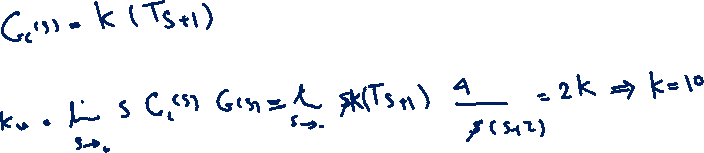 Gc(s) = k (Ts+1)
kv = lim s→0 s Gc(s) G(s) = lim s→0 sk(Ts+1) 4/s(s+2) = 2k ⇒ k=10